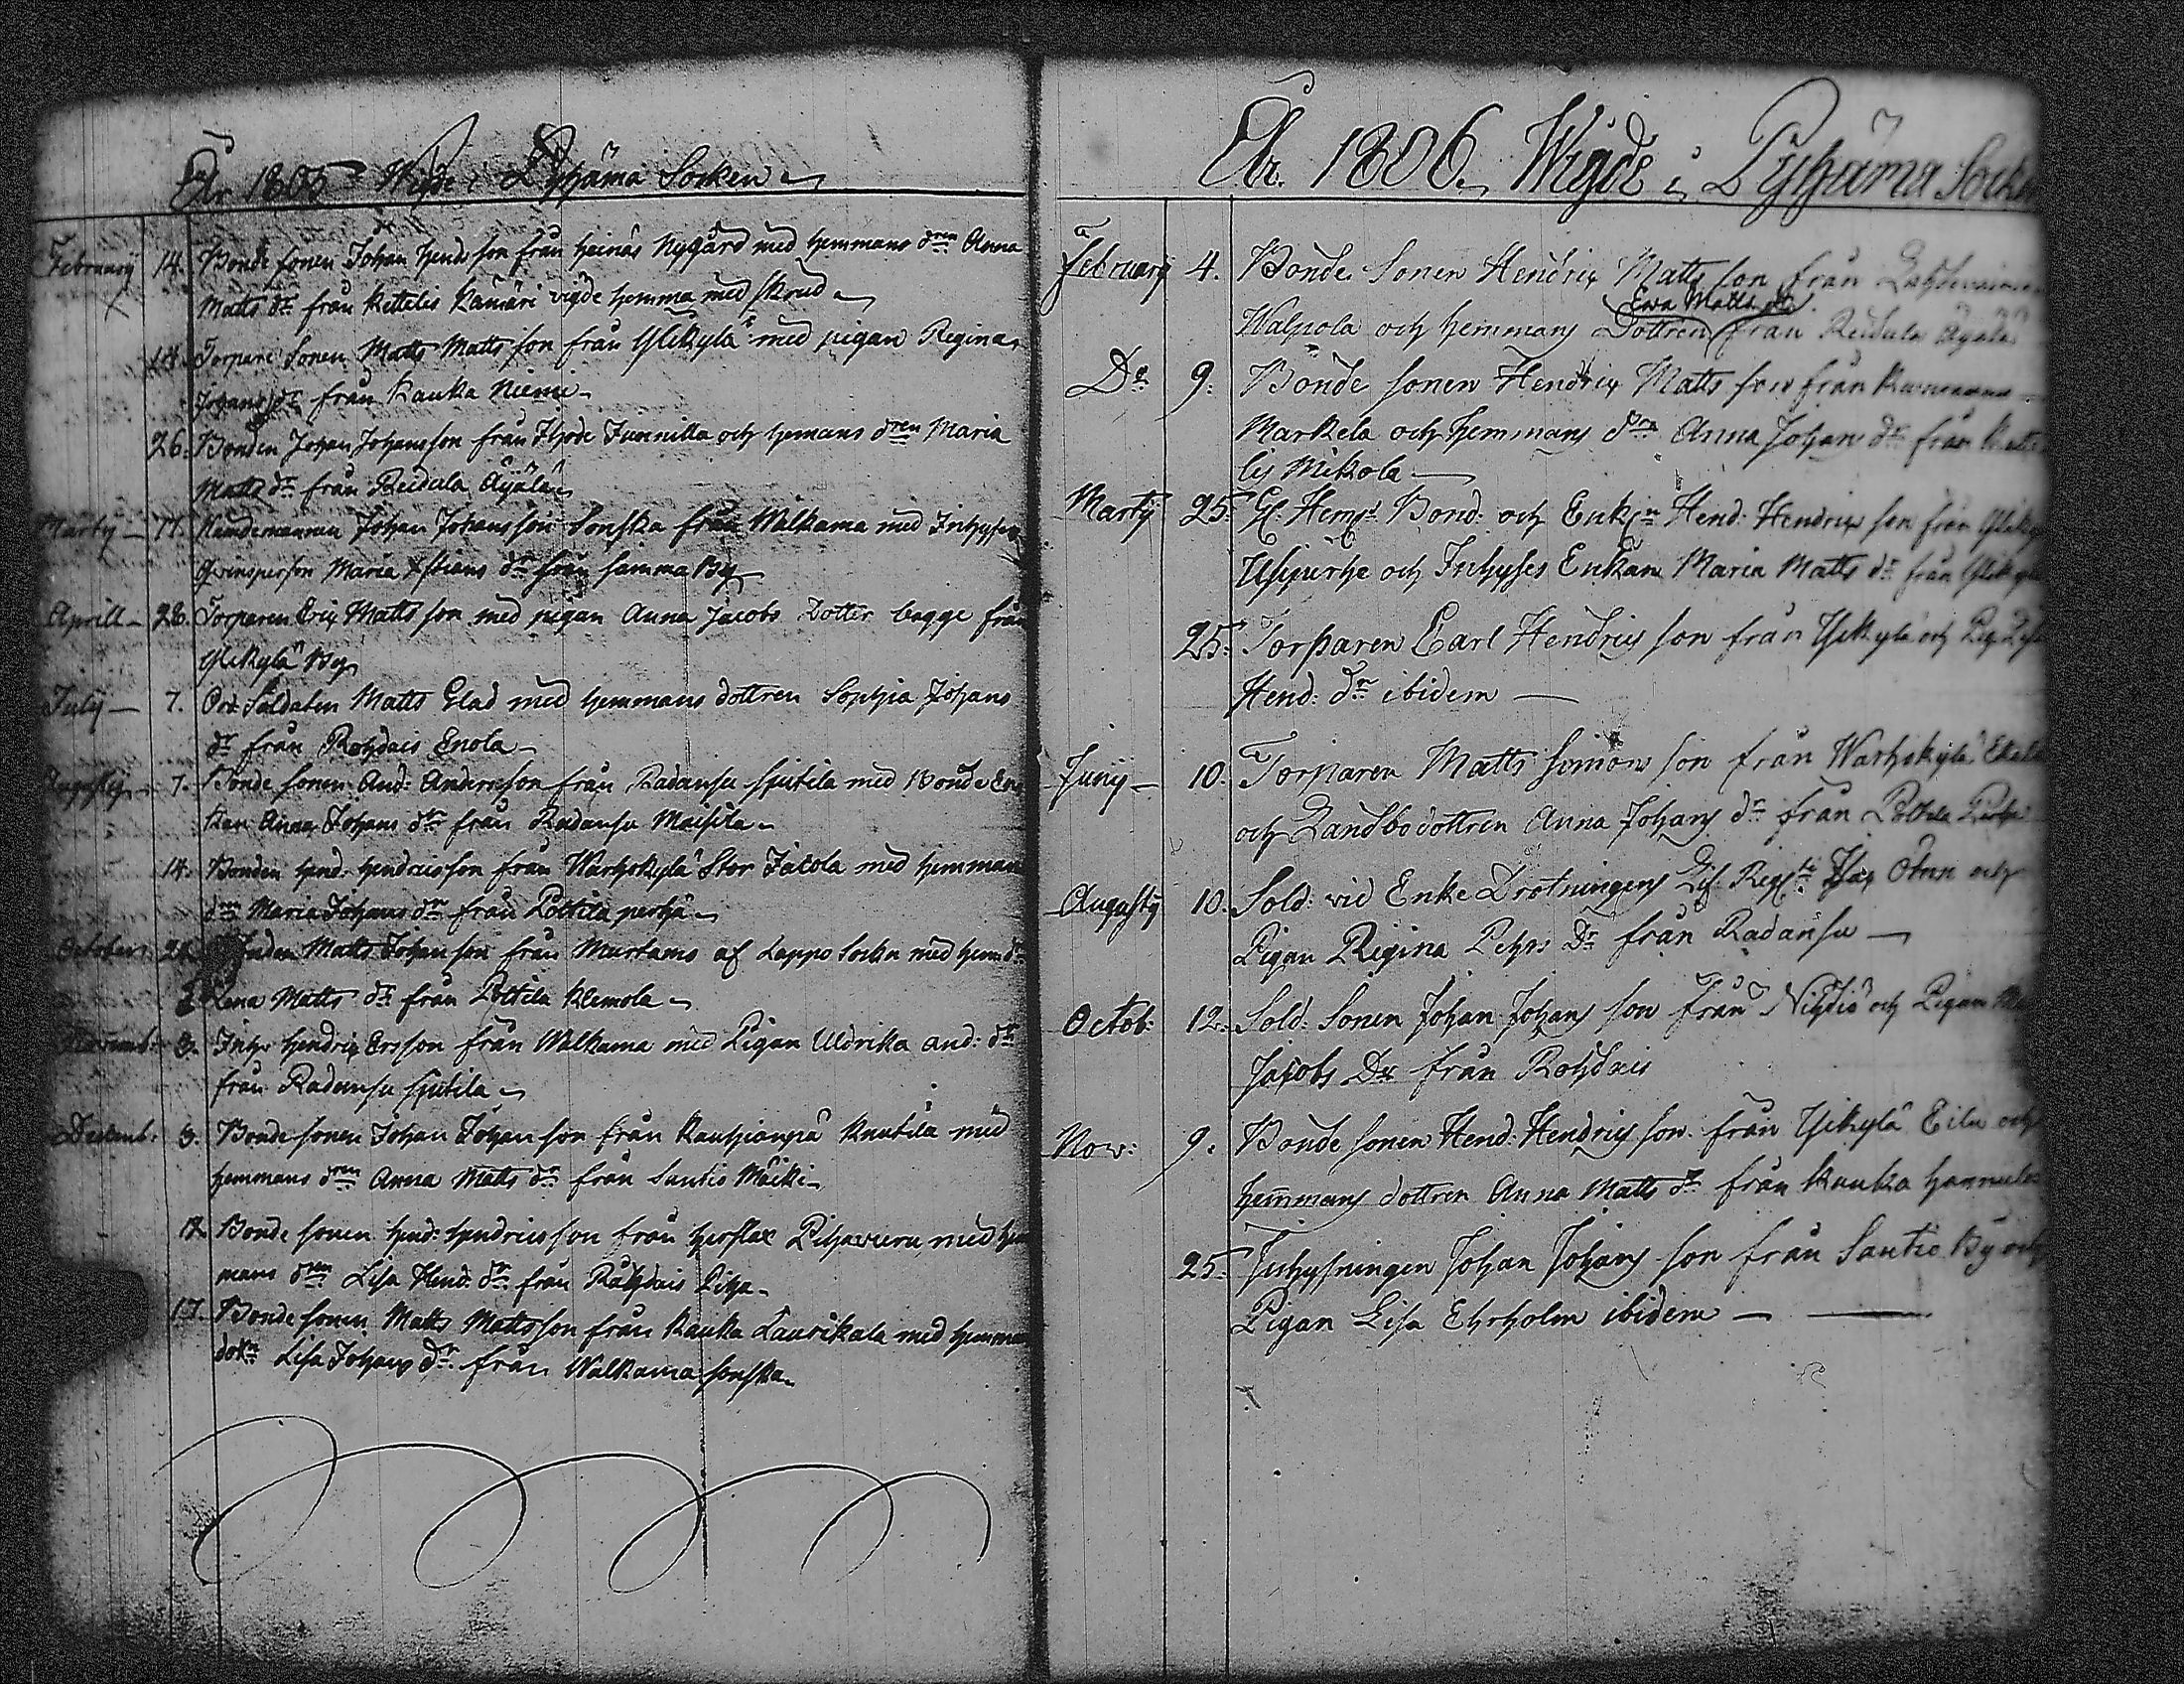 År 1805 Wigde i Pyhäma Socken
February 14. Bonde sonen Johan Hendrsson från Heinäs Nygård med hemmans dren Anna
Matts dr från Kettelis Kamäri vigde hemma med skrud
14. Torpare Sonen Matts Mattsson från Ylikylä med pigan Regina
Johans dr från Kauka Niemi
26. Bonden Johan Johansson från Ihode Junnilla och hemans dren Maria
Matts dr från Reidula Äyälä
Marty 17. Nämdemannen Johan Johansson Sonska från Walkama med Inhyses
qvinsperson Maria dr från samma By
Aprill 28. Torparen Eric Matts son med pigan Anna Jacobs Dotter bägge från
Ylikylä By
July 7. Soldaten Matts Glad med hemmans dottren Sophia Johans
dr från Rohdais Enola
Augusty 7. Bonde sonen And: Andersson från Radansu Sjutila med Bonde En
kan Anna Johans dr från Radansu Maisila
14. Bonden Hend: Hendricsson från Warhokylä Stor Jacola med hemmans
dren Maria Johans dr från Polttila
October 28. Matts Johansson från Murtamo af Lappo Sockn med hem: dr
Lena Matts dr från Polttila Klemola
Novemb: 3. Inhys Hendrix Ersson från Walkama med Pigan Uldrika And: dr
från Radansu Sjutila
Decemb: 3. Bonde sonen Johan Johansson från Kauhianpä Knutila med
hemmans dren Anna Matts dr från Santio Mäcki
12. Bonde sonen Hend: Hendricsson från med hem
mans dren Lisa Hend: dr från Rohdais Piha
17. Bonde sonen Matts Mattsson från Kauka Laurikala med hemmans
dotn Lisa Johans dr från Walkama Sonska
År 1806 Wigde i Pyhäma Socken
February 4. Bonde Sonen Hendrix Matts son från
Ewa Matts dr
Walpola och hemmans Dottren från Reidula Äyälä
Do 9. Bonde sonen Hendrix Matts son från
Markela och hemmans drn Anna Johans dr från Kette
lis Mikola
Marty 25. Bond: och Enkln Hend: Hendrix son från Ylikylä
och Inhyses Enkan Maria Matts dr från Ylikylä
25. Torparen Carl Hendrix son från Ylikylä och Pig: Lisa
Hend: dr ibidem
Juny 10. Torparen Matts Simons son från Warhokylä
och Landbodottren Anna Johans dr från Polttila
Augusty 10. Sold: vid Enke Drotningens Lif Regte och
Pigan Regina Pehrs Dr från Radansu
Octob: 12. Sold: Sonen Johan Johans son från Nihtiö och Pigan
Jacobs Dr från Rohdais
Nov: 9. Bonde sonen Hend: Hendrix son från Ylikylä Eilu och
hemmans dottren Anna Matts dr från Kauka Hannula
25. Inhysningen Johan Johans son från Santio By och
Pigan Lisa Ehrholm ibidem